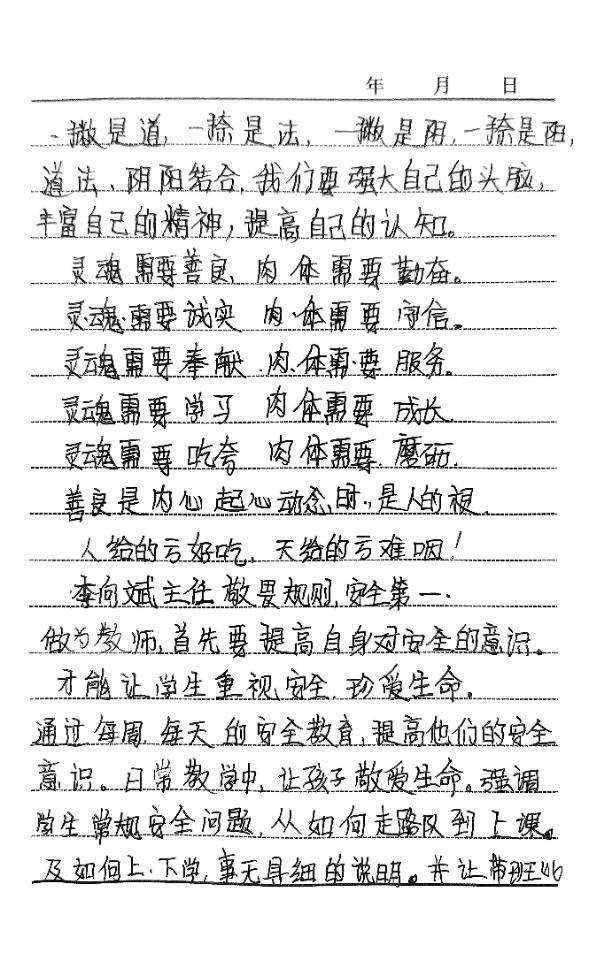 年 月 日
一撇是道,一捺是法,一撇是阴,一捺是阳,
道法、阴阳结合,我们要强大自己的头脑,
丰富自己的精神,提高自己的认知。
灵魂需要善良、肉体需要勤奋。
灵魂需要诚实 肉体需要守信。
灵魂需要奉献 肉体需要服务。
灵魂需要学习 肉体需要成长
灵魂需要吃夸 肉体需要磨砺.
善良是内心起心动念,时,是人的根.
人给的亏好吃、天给的亏难咽!
李向斌主任敬畏规则,安全第一.
做为教师,首先要提高自身对安全的意识。
才能让学生重视安全,珍爱生命。
通过每周每天的安全教育,提高他们的安全
意识。日常教学中,让孩子敬爱生命。强调
学生常规安全问题,从如何走路队到上课。
及如何上、下学,事无具细的说明。并让带班